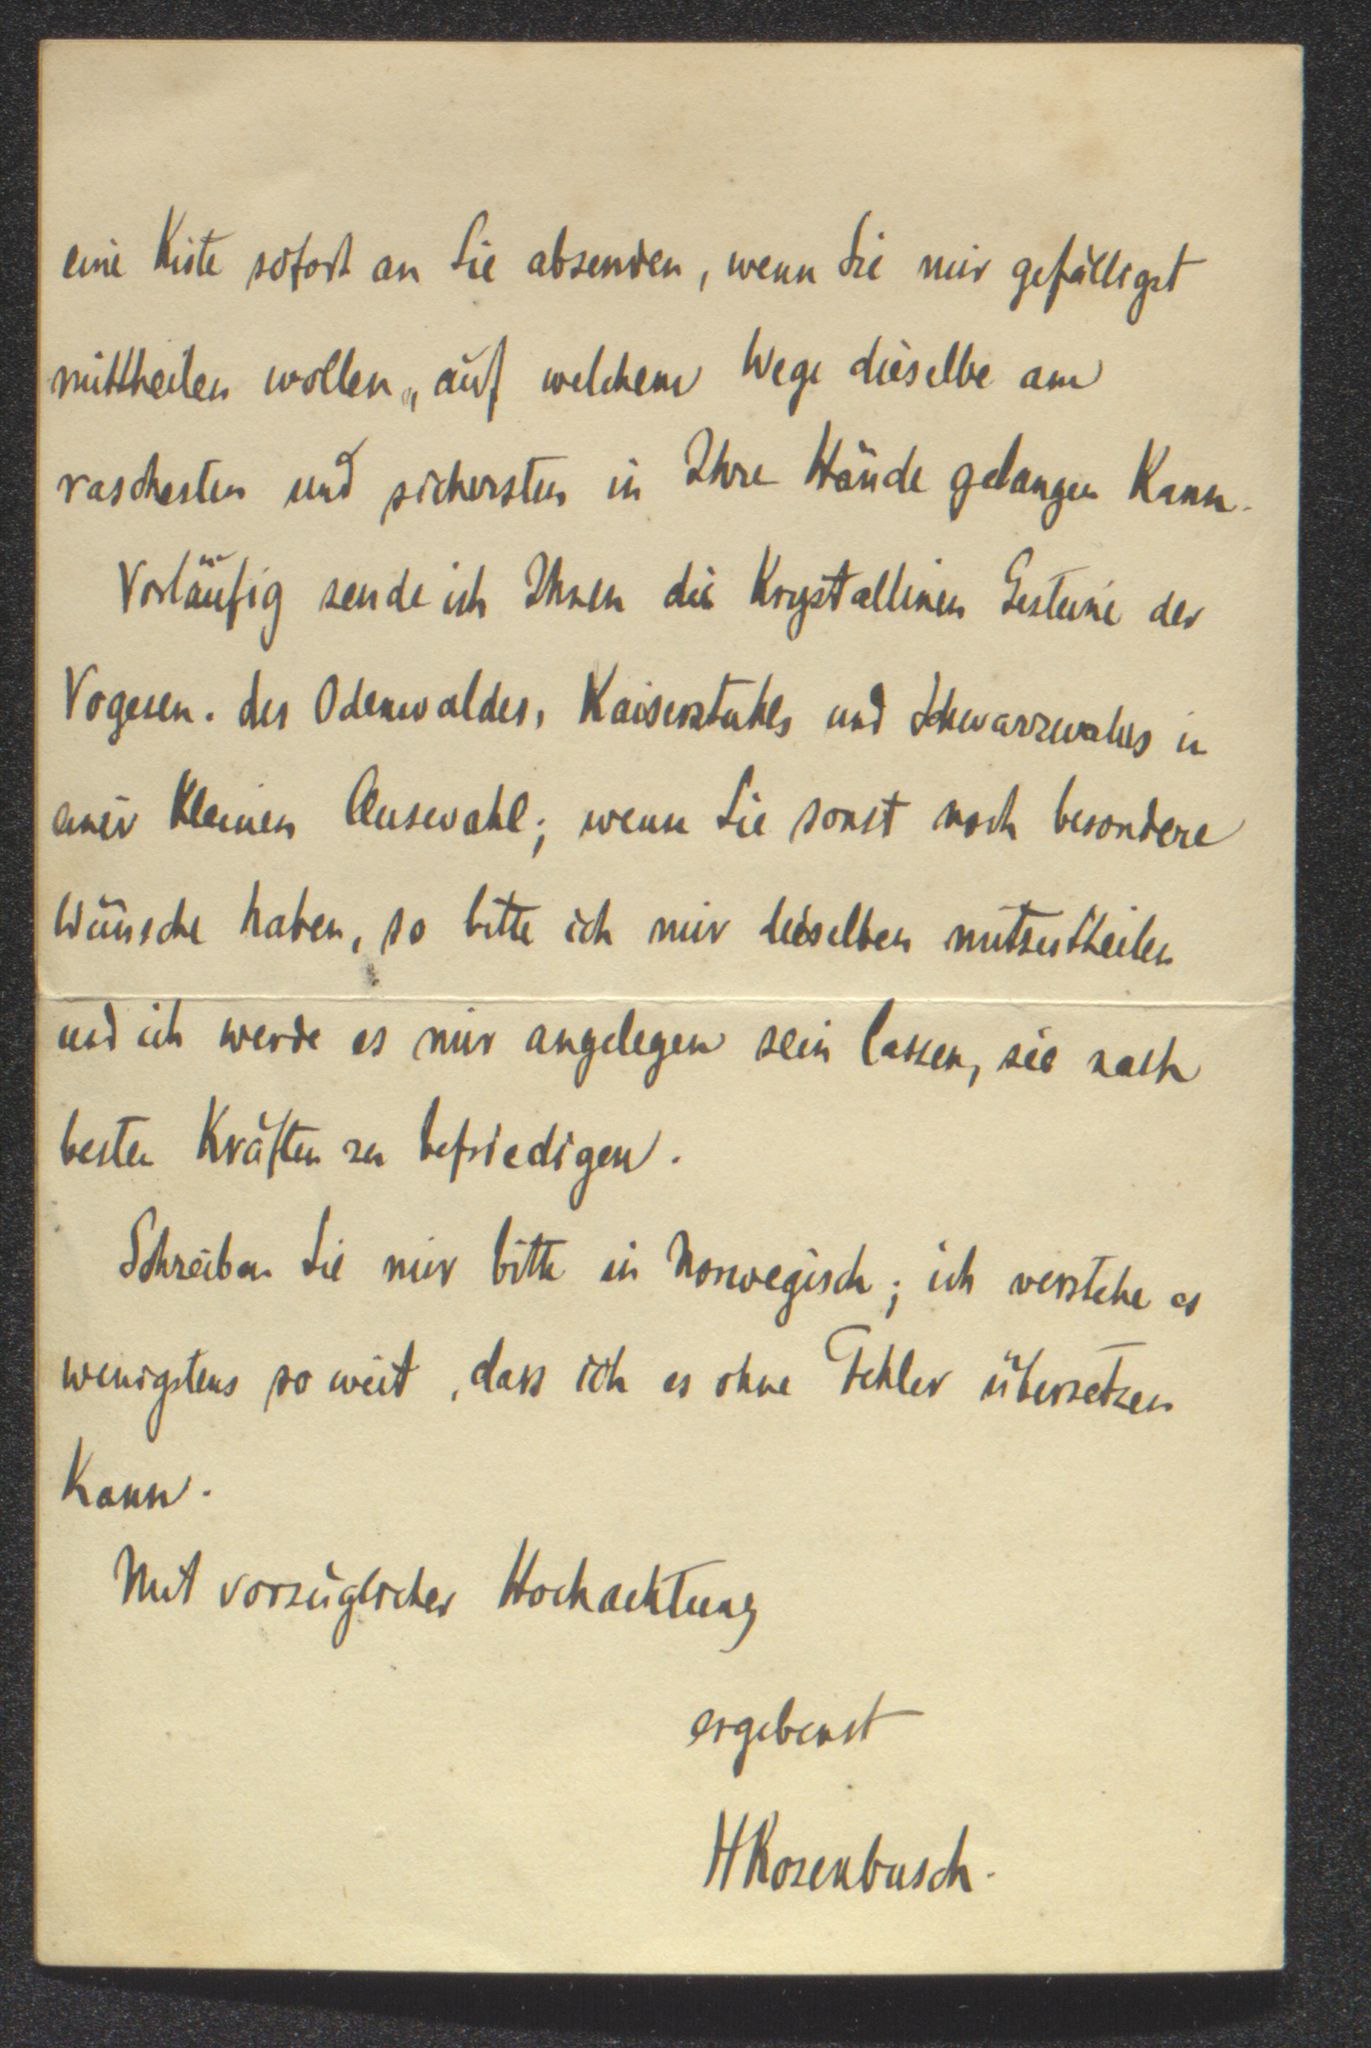 eine Kiste sofort an Sie absenden, wenn Sie mir gefälligst
mittheilen wollen, auf welchem Wege dieselbe am
raschesten und sichersten in Ihre Hände gelangen kann.
Vorläufig sende ich Ihnen die krystallinen Gesteine der
Vogesen, des Odenwaldes, Kaiserstuhls und Schwarzwalds in
einer kleinen Auswahl; wenn Sie sonst noch besondere
Wünsche haben, so bitte ich mir dieselben mitzutheilen
und ich werde es mir angelegen sein lassen, sie nach
besten Kräften zu befriedigen.
Schreiben Sie mir bitte in Norwegisch; ich verstehe es
wenigstens so weit, dass ich es ohne Fehler übersetzen
kann.
Mit vorzüglicher Hochachtung
ergebenst
HRosenbusch.